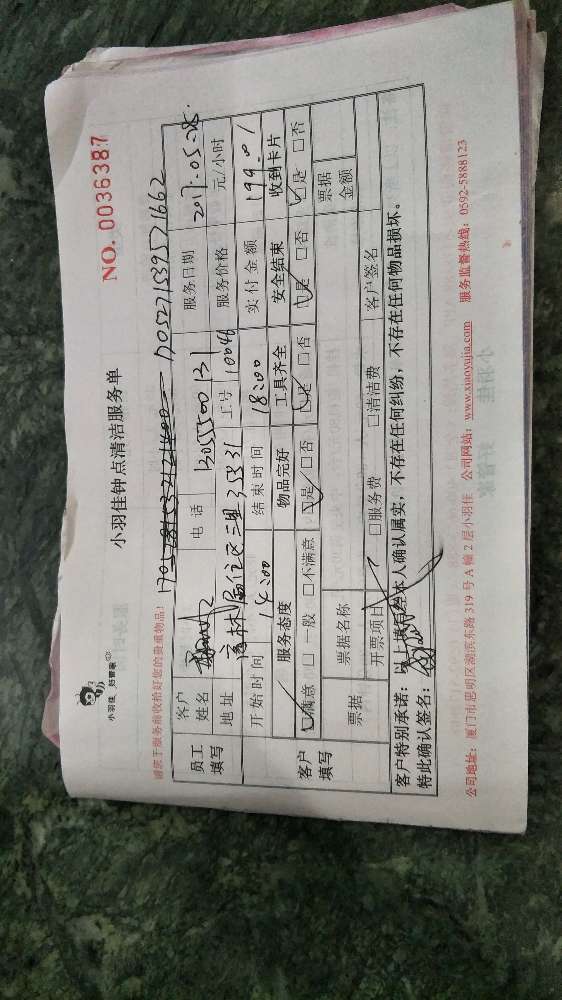 小羽佳 好管家
小羽佳钟点清洁服务单
NO. 0036387
请亲于服务前收拾好您的贵重物品!
1705271539571662
员工填写 客户姓名 电话 13055500131 服务日期 2017.05.28
地址 高林居住区三里 工号 10046 服务价格 元/小时
开始时间 14:00 结束时间 18:00 实付金额 199.01
客户填写 服务态度 物品完好 工具齐全 安全结束 收到卡片
☑满意 □一般 □不满意 ☑是 □否 ☑是 □否 ☑是 □否 ☑是 □否
票据 票据名称 票据金额
开票项目 □服务费 □清洁费 客户签名
客户特别承诺:以上填后经本人确认属实,不存在任何纠纷,不存在任何物品损坏。
特此确认签名:
公司地址:厦门市思明区湖滨东路 319 号 A 幢 2 层小羽佳 公司网站:www.xiaoyujia.com 服务监督热线:0592-5888123